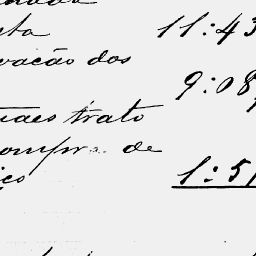 sta 11:43
vação dos
9:08
uaes trato
compr.. de
iço 1:51